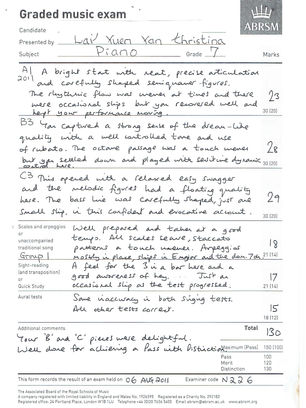 Graded music exam
ABRSM
Candidate
Presented by Lai Yuen Yan Christina
Subject Piano Grade 7 Marks
A1 A bright start with neat, precise articulation
2011 and carefully shaped semiquaver figures.
The rhythmic flow was uneven at times and there
were occasional slips but you recovered well and
kept your performance moving.
23
30 (20)
B3 You captured a strong sense of the dream-like
quality with a well controlled tone and use
of rubato. The octave passage was a touch uneven
but you settled down and played with sensitive dynamic
control here.
28
30 (20)
C3 This opened with a relaxed easy swagger
and the melodic figures had a floating quality
here. The bass line was carefully shaped, just one
small slip, in this confident and evocative account.
29
30 (20)
Scales and arpeggios
or
unaccompanied
traditional song
Group 1
Well prepared and taken at a good
tempo. All scales leave, staccato
patterns a touch uneven. Arpeggios
mostly in place, slips in E major and the dim 7th
18
21 (14)
Sight-reading
(and transposition)
or
Quick Study
A feel for the 3 in a bar here and a
good awareness of key. Just an
occasional slip as the test progressed.
17
21 (14)
Aural tests
Some inaccuracy in both singing tests.
All other tests correct.
15
18 (12)
Additional comments
Total
130
Your 'B' and 'C' pieces were delightful.
Well done for achieving a Pass with Distinction.
Maximum (Pass) 150 (100)
Pass 100
Merit 120
Distinction 130
This form records the result of an exam held on 06 AUG 2011 Examiner code N226
The Associated Board of the Royal Schools of Music